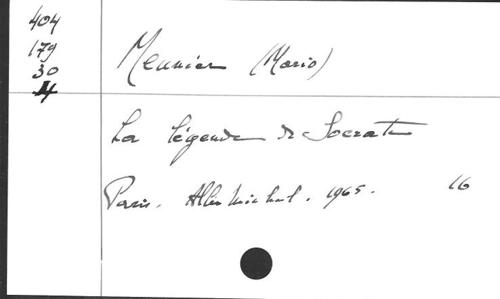 404
179
30
4
Meunier (Mario)
La légende de Socrate
Paris. Albin Michel. 1965. 16